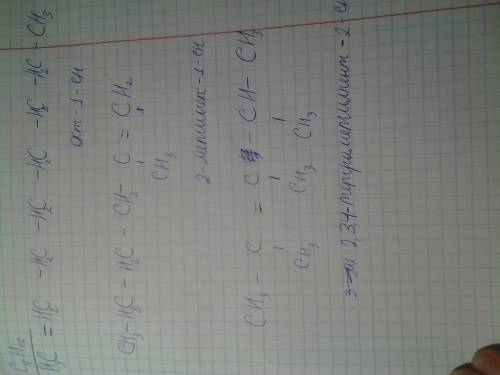 H₂C = HC - H₂C - H₂C - H₂C - H₂C - H₂C - CH₃
окт-1-ен
CH₃ - H₂C - H₂C - CH₂ - C = CH₂
CH₃
2-метилгекс-1-ен
CH₃ - C = C - CH - CH₃
CH₃ CH₃ CH₃
2,3,4-тетраметилпент-2-ен